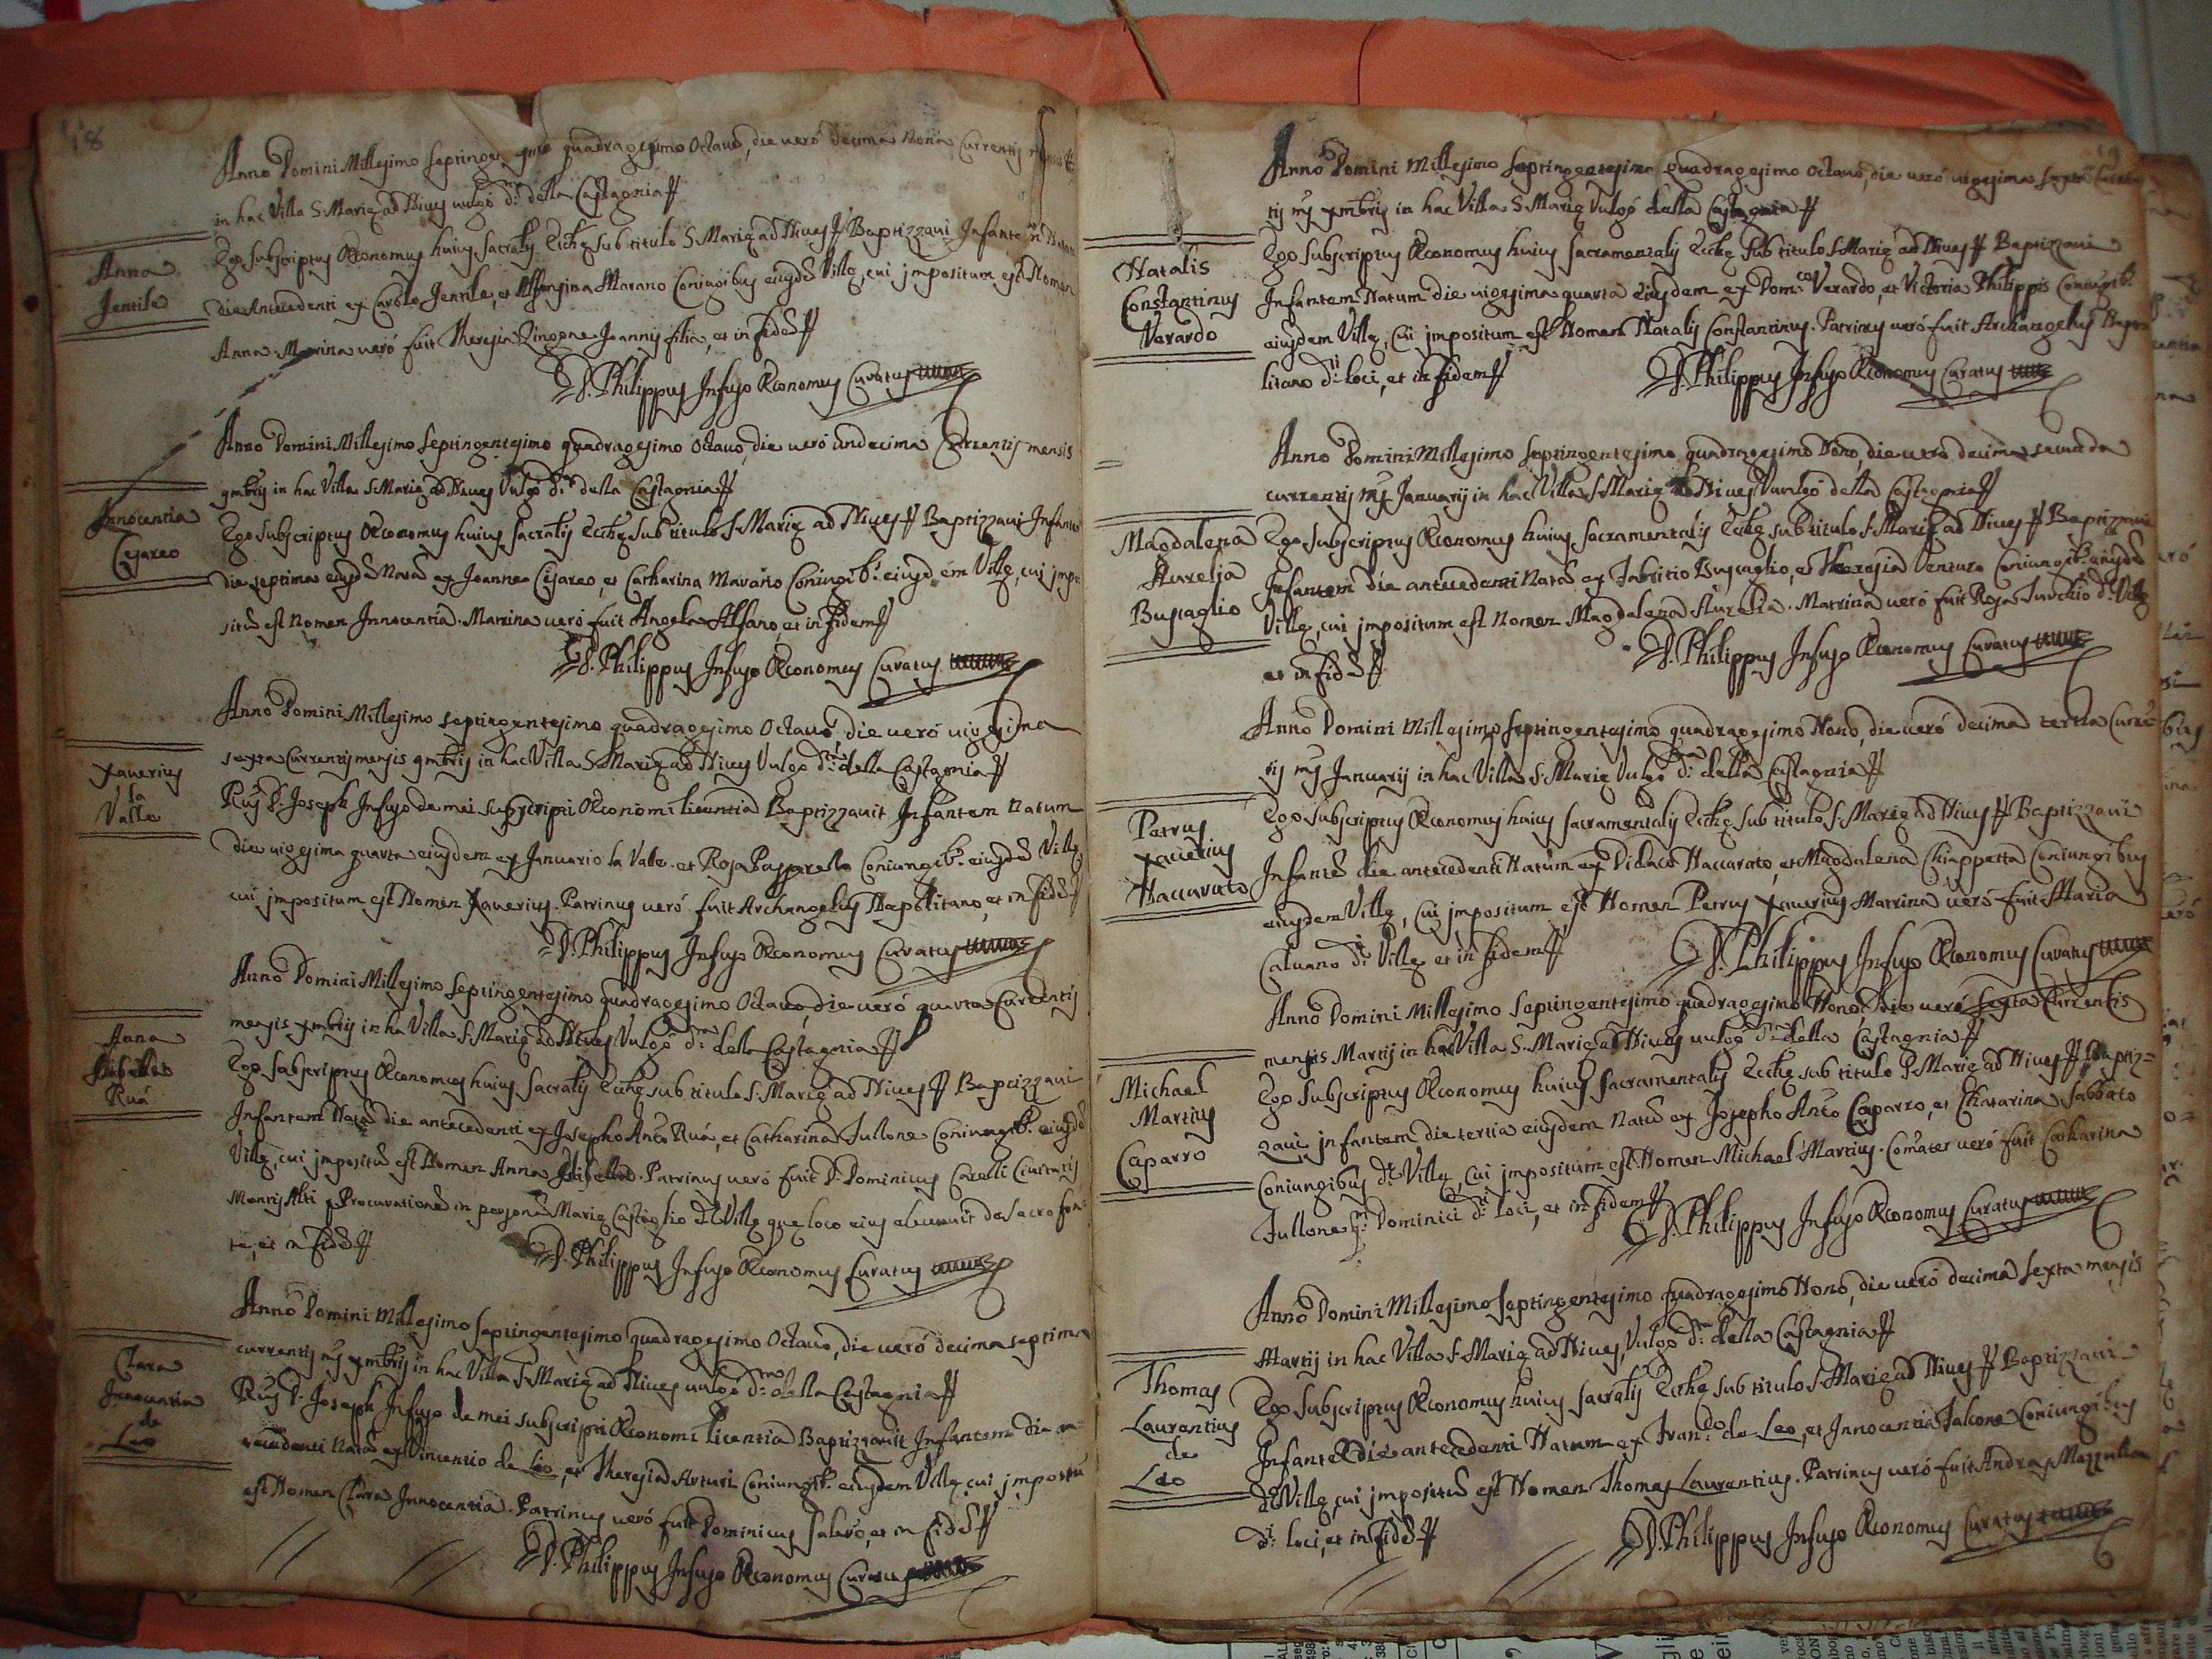 18
Anno Domini Millesimo septingen gmo quadragesimo Octavo, die verò decima nona Currentis
in hac Villa S. Mariæ ad Nives vulgo d: della Castagnia
Anna
Jentile
Ego subscriptus Œconomus huius sacralis Eccłæ sub titulo S. Mariæ ad Nives Baptizzavi Infante
die antecedenti ex Carolo Jentile, et Alfonsina Marano Coniugibus eiusd Villæ, cui impositum est Nomen
Anna. Matrina verò fuit Theresia Joannis filia, et in fid
D. Philippus Infuso Œconomus Curatus
Anno Domini Millesimo septingentesimo quadragesimo octavo, die verò undecima Currentis mensis
9mbris in hac Villa S. Mariæ ad Nives Vulgo d: della Castagnia
Innocentia
Cesareo
Ego subscriptus Œconomus huius sacralis Eccłæ sub titulo S. Mariæ ad Nives Baptizzavi Infantem
die septima eiusd Natã ex Joanne Cesareo, et Catharina Marano Coniugib: eiusdem Villæ, cui impo
sitũ est Nomen Innocentia. Matrina verò fuit Angela Alfano, et in fidem
D. Philippus Infuso Œconomus Curatus
Anno Domini Millesimo septingentesimo quadragesimo Octavo die verò vigesima
sexta Currentis mensis 9mbris in hac Villa S. Mariæ ad Nives Vulgo d: della Castagnia
Xaverius
la
Valle
Rũs D. Joseph Infuso de mei subscripti Œconomi licentia Baptizzavit Infantem Natum
die vigesima quarta eiusdem ex Januario la Valle et Rosa Passarello Coniugib: eiusd Villæ
cui impositum est Nomen Xaverius. Patrinus verò fuit Archangelus Napolitano, et in fid
D. Philippus Infuso Œconomus Curatus
Anno Domini Millesimo septingentesimo quadragesimo Octavo, die verò quarta Currentis
mensis Xmbris in ha Villa S. Mariæ ad Nives Vulgo d: della Castagnia
Anna
Ruá
Ego subscriptus Œconomus huius sacralis Eccłæ sub titulo S. Mariæ ad Nives Baptizzavi
Infantem Natã die antecedenti ex Josepho Anto Ruá, et Catharina Fullone Coniugib: eiusd
Villæ, cui impositũ est Nomen Anna. Patrinus verò fuit D. Dominicus Caselli Civitatis
Montis Alti Procuratione in persona Mariæ Castiglio d: Villæ quæ loco eius elevavit de sacro fon
te, et in fid
D. Philippus Infuso Œconomus Curatus
Anno Domini Millesimo septingentesimo quadragesimo Octavo, die verò decima septima
currentis ms Xmbris in hac Villa S. Mariæ ad Nives vulgo d: della Castagnia
Clara
Innocentia
de
Leo
Rũs D. Joseph Infuso de mei subscripti Œconomi licentia Baptizzavit Infantem die an
tecedenti Natã ex Vincentio de Leo, et Theresia Arturi Coniugib: eiusdem Villæ cui impositũ
est Nomen Clara Innocentia. Patrinus verò fuit Dominicus, et in fid
D. Philippus Infuso Œconomus Curatus
19
Anno Domini Millesimo septingentesimo quadragesimo octavo, die verò vigesima
tis ms Xmbris in hac Villa S. Mariæ Vulgo della Castagnia
Natalis
Constantinus
Verardo
Ego subscriptus Œconomus huius sacramentalis Eccłæ sub titulo S. Mariæ ad Nives Baptizzavi
Infantem Natum die vigesima quarta eiusdem ex Dom:co Verardo, et Victoria Philippis Coniugib:
eiusdem Villæ, cui impositum est Nomen Natalis Constantinus. Patrinus verò fuit Archangelus Napo
litano d: loci, et in fidem
D. Philippus Infuso Œconomus Curatus
Anno Domini Millesimo septingentesimo quadragesimo Nono, die verò decima secunda
currentis ms Januarij in hac Villa S. Mariæ ad Nives Vulgò della Castagnia
Magdalena
Aurelia
Buscaglio
Ego subscriptus Œconomus huius sacramentalis Eccłæ sub titulo S. Mariæ ad Nives Baptizzavi
Infantem die antecedenti Natã ex Fabritio Buscaglio, et Theresia Venturo Coniugib: eiusd
Villæ, cui impositum est Nomen Magdalena Aurelia. Matrina verò fuit Rosa d: Villæ
et in fid
D. Philippus Infuso Œconomus Curatus
Anno Domini Millesimo septingentesimo quadragesimo Nono, die verò decima tertia Curren
tis ms Januarij in hac Villa S. Mariæ Vulgo d: della Castagnia
Petrus
Xaverius
Naccarato
Ego subscriptus Œconomus huius sacramentalis Eccłæ sub titulo S. Mariæ ad Nives Baptizzavi
Infantẽ die antecedenti Natum ex Didaco Naccarato, et Magdalena Chiappetta Coniugibus
eiusdem Villæ, cui impositum est Nomen Petrus Xaverius Matrina verò fuit Maria
Caluano d: Villæ et in fidem
D. Philippus Infuso Œconomus Curatus
Anno Domini Millesimo septingentesimo quadragesimo Nono, die verò sexta Currentis
mensis Martij in hac Villa S. Mariæ ad Nives vulgo d: della Castagnia
Michael
Martius
Caparro
Ego subscriptus Œconomus huius sacramentalis Eccłæ sub titulo S. Mariæ ad Nives Baptiz=
zavi infantem die tertia eiusdem Natũ ex Josepho Anto Caparro, et Chatarina Sabbato
Coniugibus d: Villæ, cui impositum est Nomen Michael Martius. Comater verò fuit Catharina
Fullone Dominici d: loci, et in fidem
D. Philippus Infuso Œconomus Curatus
Anno Domini Millesimo septingentesimo quadragesimo Nono, die verò decima sexta mensis
Martij in hac Villa S. Mariæ ad Nives, Vulgo d: della Castagnia
Thomas
Laurentius
de
Leo
Ego subscriptus Œconomus huius sacralis Eccłæ sub titulo S. Mariæ ad Nives Baptizzavi
Infantẽ die antecedenti Natum ex Fran:co de Leo, et Innocentia Falcone Coniugibus
d: Villæ, cui impositũ est Nomen Thomas Laurentius. Patrinus verò fuit Andreas Mazzulla
d: loci, et in fid
D. Philippus Infuso Œconomus Curatus